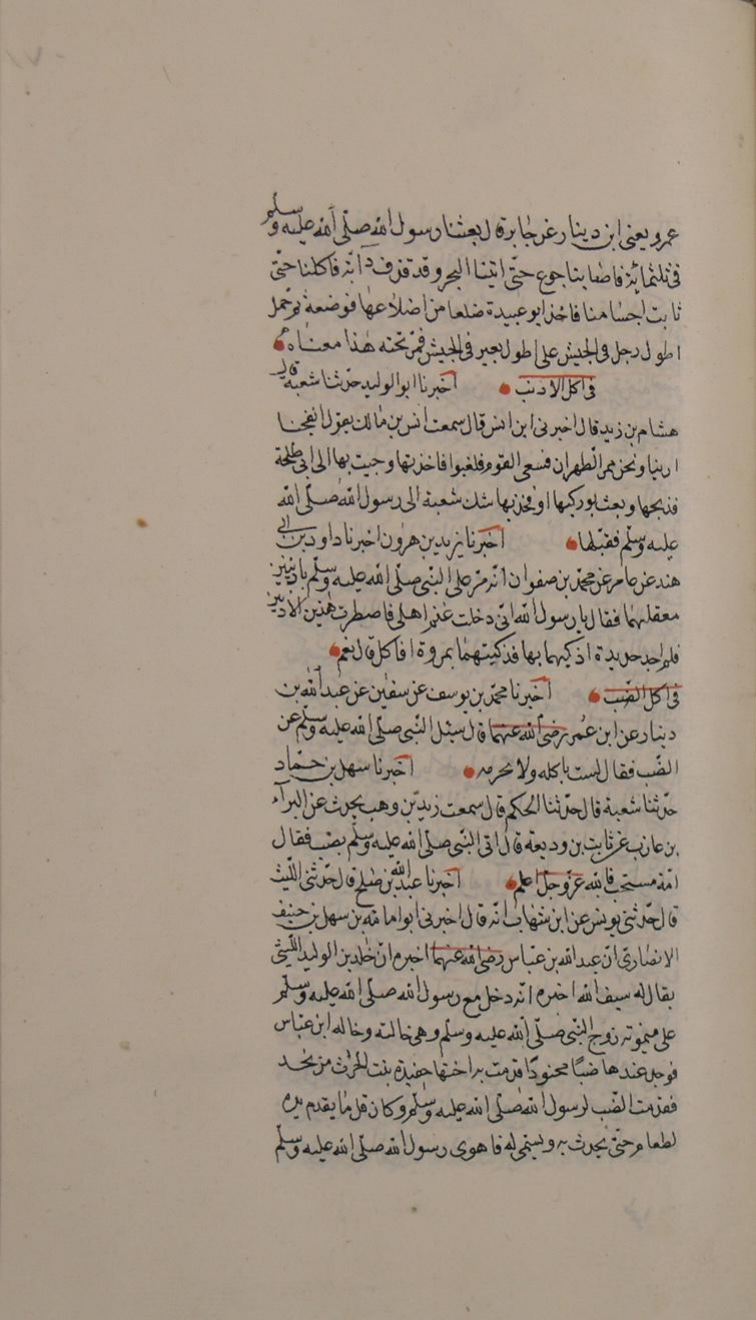 عمرو يعني ابن دينار عن جابر قال بعثنا رسول الله صلى الله عليه وسلم
في ثلثمائة فاصابنا جوع حتى اتينا البحر وقد قذف دابة فاكلنا حتى
ثابت اجسامنا فاخذ ابو عبيدة ضلعا من اضلاعها فوضعه ثم حمل
اطول رجل في الجيش على اطول بعير في الجيش فمر تحته هذا معناه
في اكل الارنب اخبرنا ابو الوليد حدثنا شعبة قال
هشام بن زيد قال اخبرني ابن انس قال سمعت انس بن مالك يقول انفجنا
ارنبا ونحن بمر الظهران فسعى القوم فلغبوا فاخذتها وجيت بها الى ابي طلحة
فذبحها وبعث بوركيها او فخذيها شك شعبة الى رسول الله صلى الله
عليه وسلم فقبلها اخبرنا يزيد بن هرون اخبرنا داود بن ابي
هند عن عامر عن محمد بن صفوان انه مر على النبي صلى الله عليه وسلم بارنبين
معقلهما فقال يا رسول الله اني دخلت غنم اهلي فاصطدت هذين الارنبين
فلم اجد حديدة اذكيهما بها فذكيتهما بمروة افاكل قال نعم
في اكل الضب اخبرنا محمد بن يوسف عن سفين عن عبد الله بن
دينار عن ابن عمر رضي الله عنهما قال سئل النبي صلى الله عليه وسلم عن
الضب فقال لست باكله ولا محرمه اخبرنا سهل بن حماد
حدثنا شعبة قال حدثنا الحكم قال سمعت زيد بن وهب يحدث عن البراء
بن عازب عن ثابت بن وديعة قال اتي النبي صلى الله عليه وسلم بضب فقال
امة مسخت فالله عز وجل اعلم اخبرنا عبد الله بن صلح قال حدثني الليث
قال حدثني يونس عن ابن شهاب انه قال اخبرني ابو امامة بن سهل بن حنيف
الانصاري ان عبد الله بن عباس رضي الله عنهما اخبره ان خلد بن الوليد الذي
يقال له سيف الله اخبره انه دخل مع رسول الله صلى الله عليه وسلم
على ميمونة زوج النبي صلى الله عليه وسلم وهي خالته وخالة ابن عباس
فوجد عندها ضبا محنوذا قدمت به اختها حفيدة بنت الحرث من نجد
فقدمت الضب لرسول الله صلى الله عليه وسلم وكان قل ما يقدم يده
لطعام حتى يحدث به ويسمى له فاهوى رسول الله صلى الله عليه وسلم